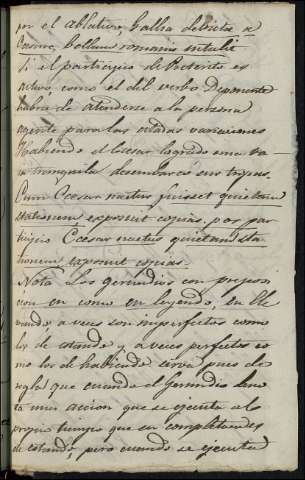 por el ablativo, Gallia devicta a
Cesare, bellum romanis intulit
Si el participio de Preterito es
activo, como el del verbo Deponente
habrá de atenderse a la persona
agente para las citadas variaciones
Habiendo el Cesar logrado una ra
tranquila desembarcó sus tropas.
Cum Cesar nactus fuisset quietam
stationem exposuit copias. por par
ticipio Cesar nactus quietam sta
tionem exposuit copias.
Nota Los gerundios con preposi
cion en como en leyendo, en lle
gando, a veces son imperfectos como
los de estando y à veces perfectos co
mo los de habiendo sirva pues de
regla que cuando el gerundio deno
ta una accion que se ejecuta a lo
propio tiempo que su completa es
de estando, pero cuando se ejecuta